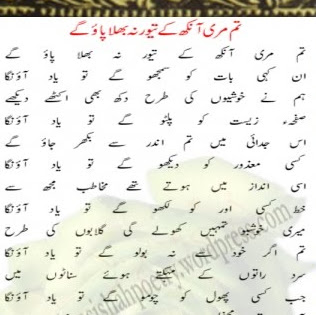 تم مری آنکھ کے تیور نہ بھلا پاؤ گے
تم مری آنکھ کے تیور نہ بھلا پاؤ گے
ان کہی بات کو سمجھو گے تو یاد آؤنگا
ہم نے خوشیوں کی طرح دکھ بھی اکٹھے دیکھے
صفحہء زیست کو پلٹو گے تو یاد آؤنگا
اس جدائی میں تم اندر سے بکھر جاؤ گے
کسی معذور کو دیکھو گے تو یاد آؤنگا
اسی انداز میں ہوتے تھے مخاطب مجھ سے
خط کسی اور کو لکھو گے تو یاد آؤنگا
میری خوشبو تمہیں کھولے گی گلابوں کی طرح
تم اگر خود سے نہ بولو گے تو یاد آؤنگا
سرد راتوں کے مہکتے ہوئے سناٹوں میں
جب کسی پھول کو چومو گے تو یاد آؤنگا
shahpoetry.wordpress.com